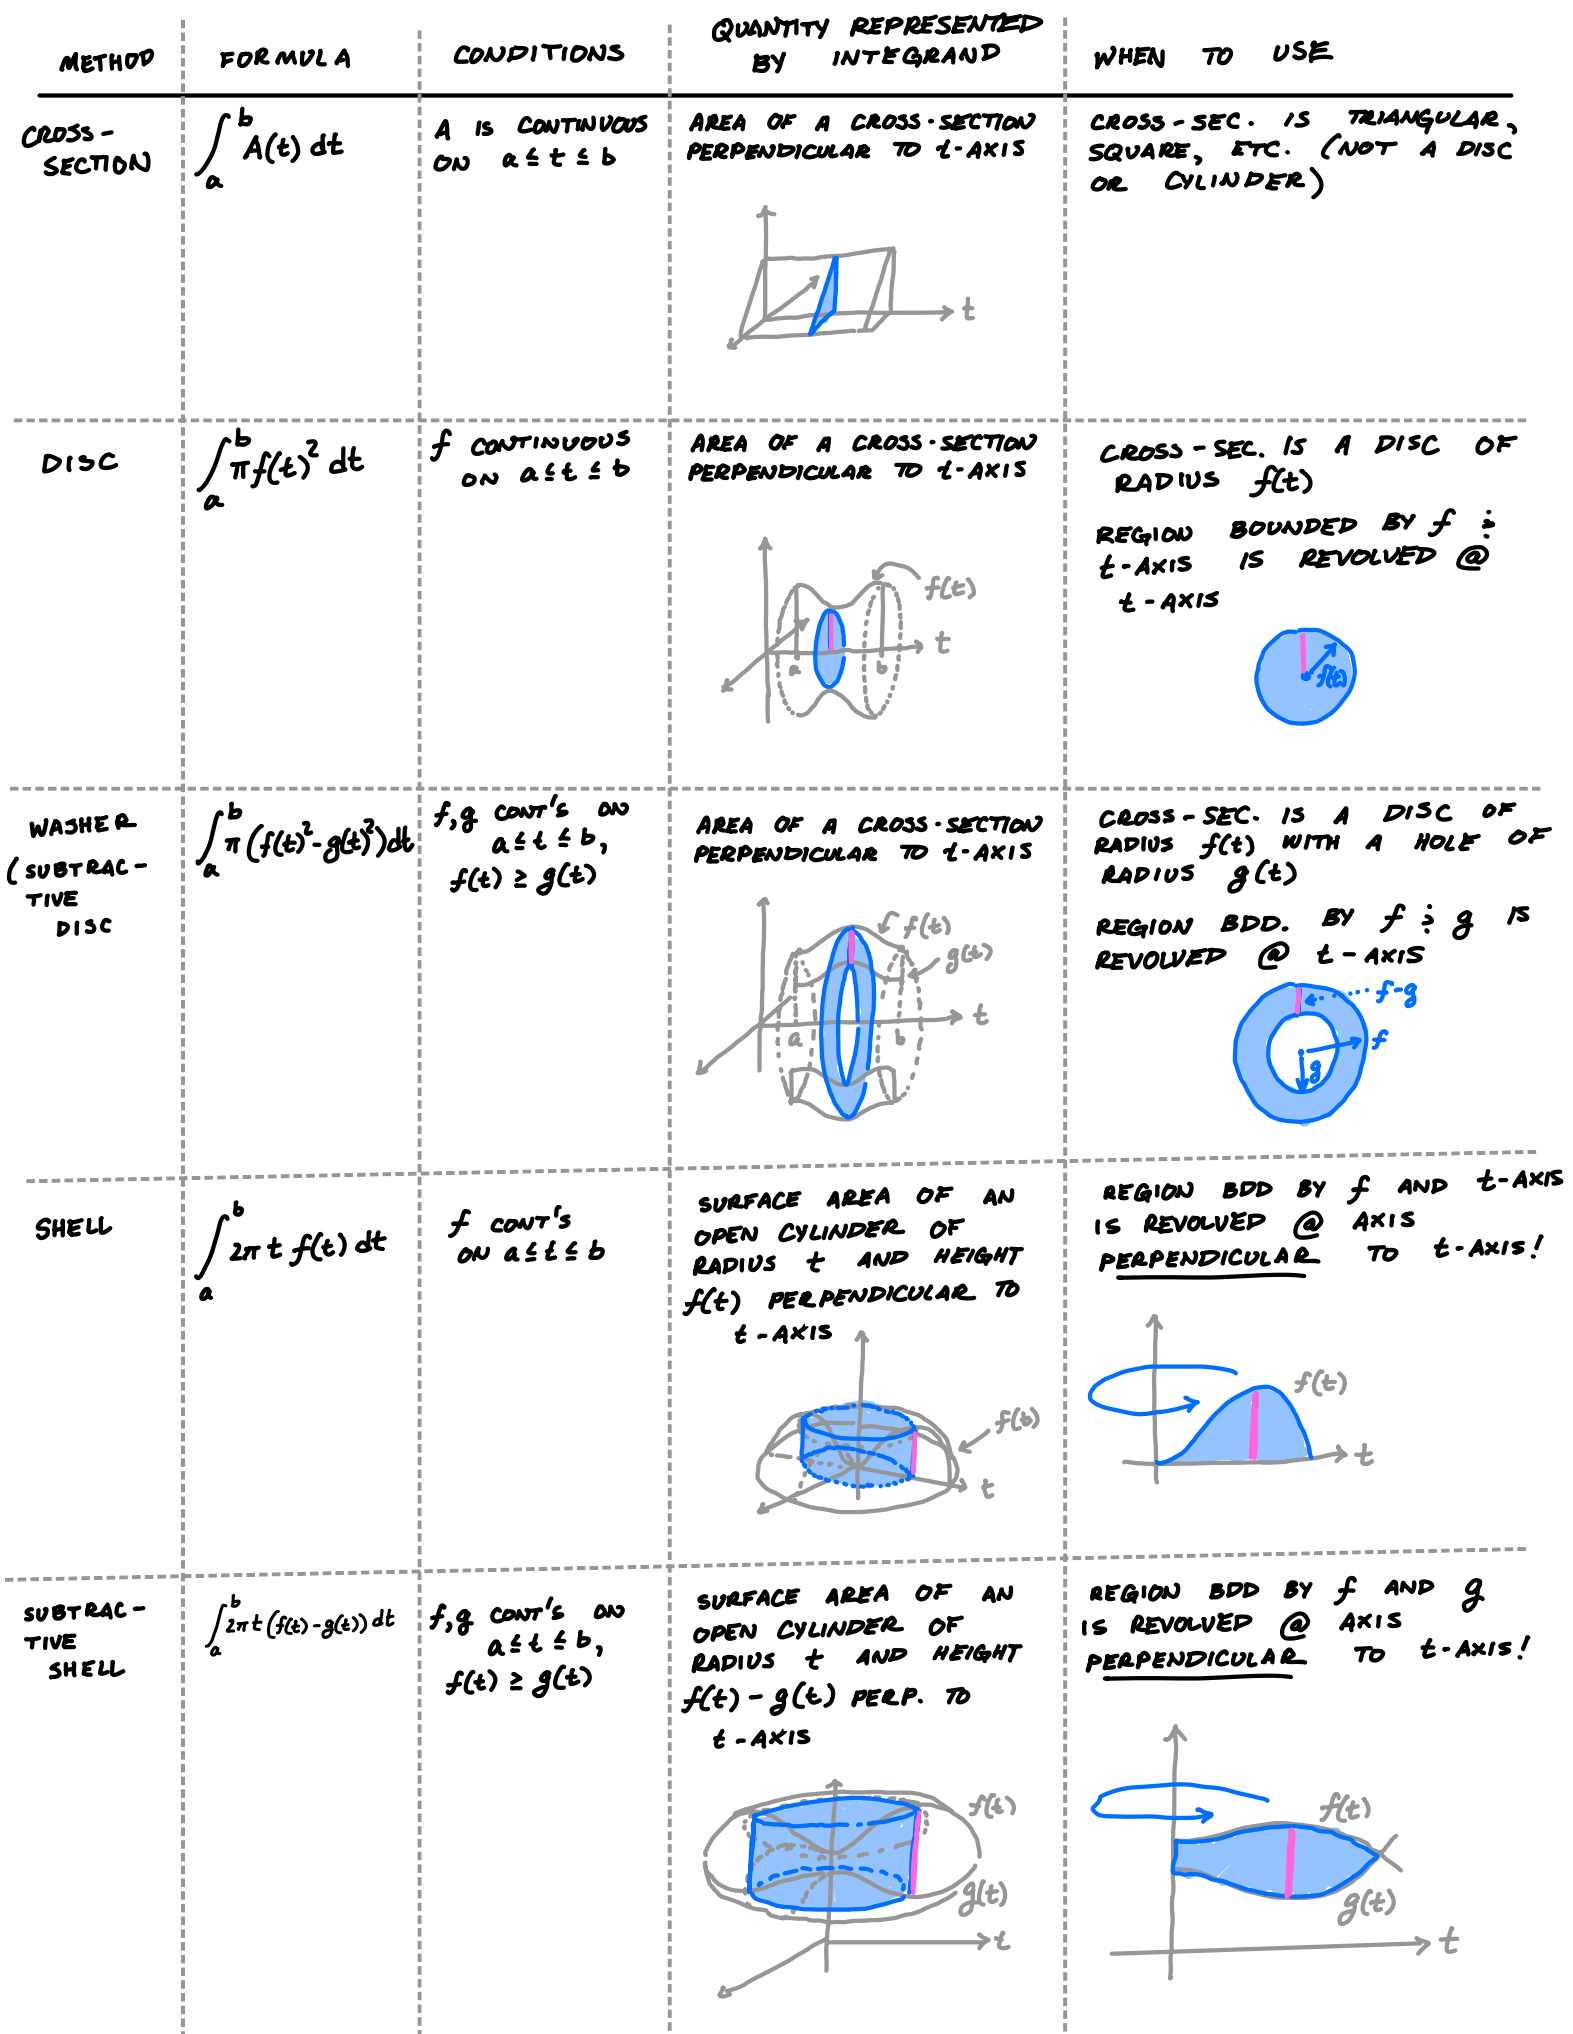 METHOD
FORMULA
CONDITIONS
QUANTITY REPRESENTED
BY INTEGRAND
WHEN TO USE
CROSS-
SECTION
∫_a^b A(t) dt
A IS CONTINUOUS
ON a ≤ t ≤ b
AREA OF A CROSS-SECTION
PERPENDICULAR TO t-AXIS
t
CROSS-SEC. IS TRIANGULAR,
SQUARE, ETC. (NOT A DISC
OR CYLINDER)
DISC
∫_a^b π f(t)² dt
f CONTINUOUS
ON a ≤ t ≤ b
AREA OF A CROSS-SECTION
PERPENDICULAR TO t-AXIS
f(t)
t
a
b
CROSS-SEC. IS A DISC OF
RADIUS f(t)
REGION BOUNDED BY f &
t-AXIS IS REVOLVED @
t-AXIS
f(t)
WASHER
(SUBTRAC-
TIVE
DISC
∫_a^b π (f(t)²-g(t)²) dt
f,g CONT'S ON
a ≤ t ≤ b,
f(t) ≥ g(t)
AREA OF A CROSS-SECTION
PERPENDICULAR TO t-AXIS
f(t)
g(t)
t
a
b
CROSS-SEC. IS A DISC OF
RADIUS f(t) WITH A HOLE OF
RADIUS g(t)
REGION BDD. BY f & g IS
REVOLVED @ t-AXIS
f-g
f
g
SHELL
∫_a^b 2π t f(t) dt
f CONT'S
ON a ≤ t ≤ b
SURFACE AREA OF AN
OPEN CYLINDER OF
RADIUS t AND HEIGHT
f(t) PERPENDICULAR TO
t-AXIS
f(b)
t
REGION BDD BY f AND t-AXIS
IS REVOLVED @ AXIS
PERPENDICULAR TO t-AXIS!
f(t)
t
SUBTRAC-
TIVE
SHELL
∫_a^b 2π t (f(t)-g(t)) dt
f,g CONT'S ON
a ≤ t ≤ b,
f(t) ≥ g(t)
SURFACE AREA OF AN
OPEN CYLINDER OF
RADIUS t AND HEIGHT
f(t) - g(t) PERP. TO
t-AXIS
f(t)
g(t)
t
REGION BDD BY f AND g
IS REVOLVED @ AXIS
PERPENDICULAR TO t-AXIS!
f(t)
g(t)
t